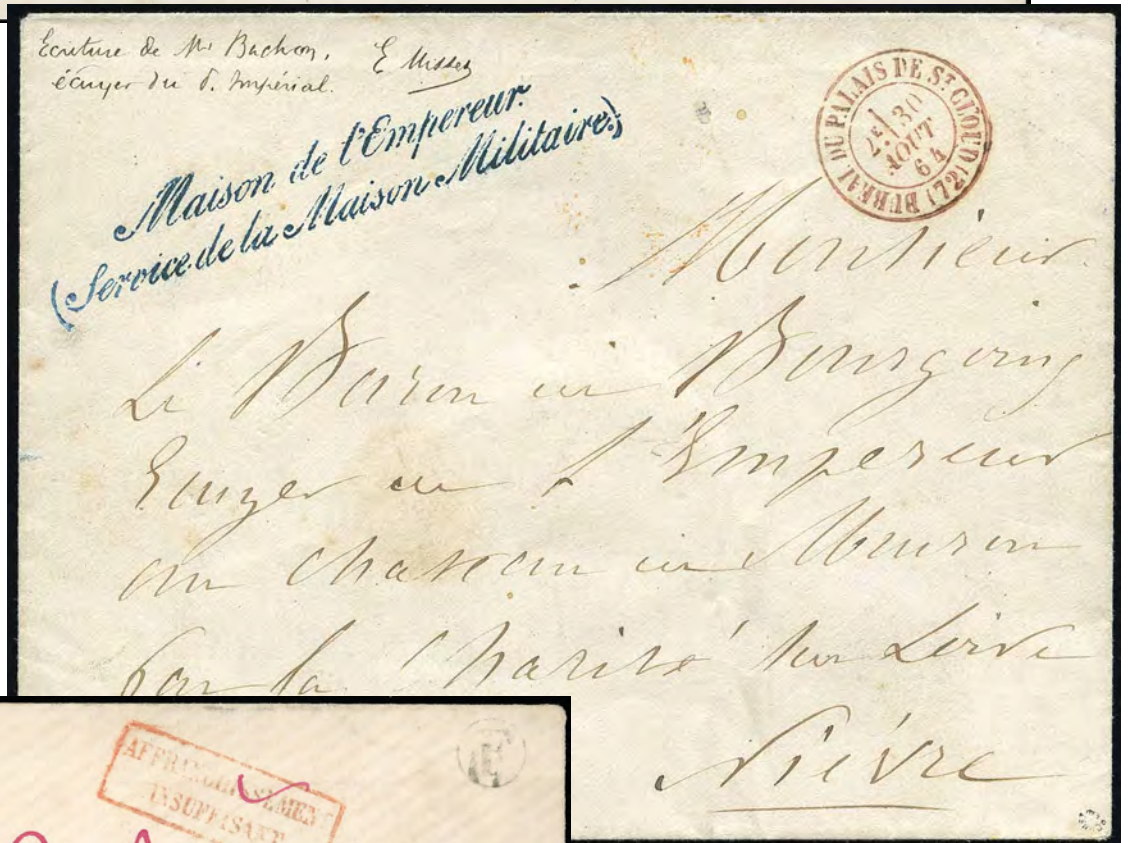 Ecriture de Mr Bachon,
écuyer du P. Impérial.
E Misset
Maison de l'Empereur.
(Service de la Maison Militaire.)
BUREAU DU PALAIS DE St CLOUD (72)
2E
30
AOUT
64
Monsieur
Le Baron de Bourgoing
Ecuyer de l'Empereur
au chateau de Mouron
par la Charité sur Loire
Nièvre
AFFRANCHISSEMENT
INSUFFISANT
E